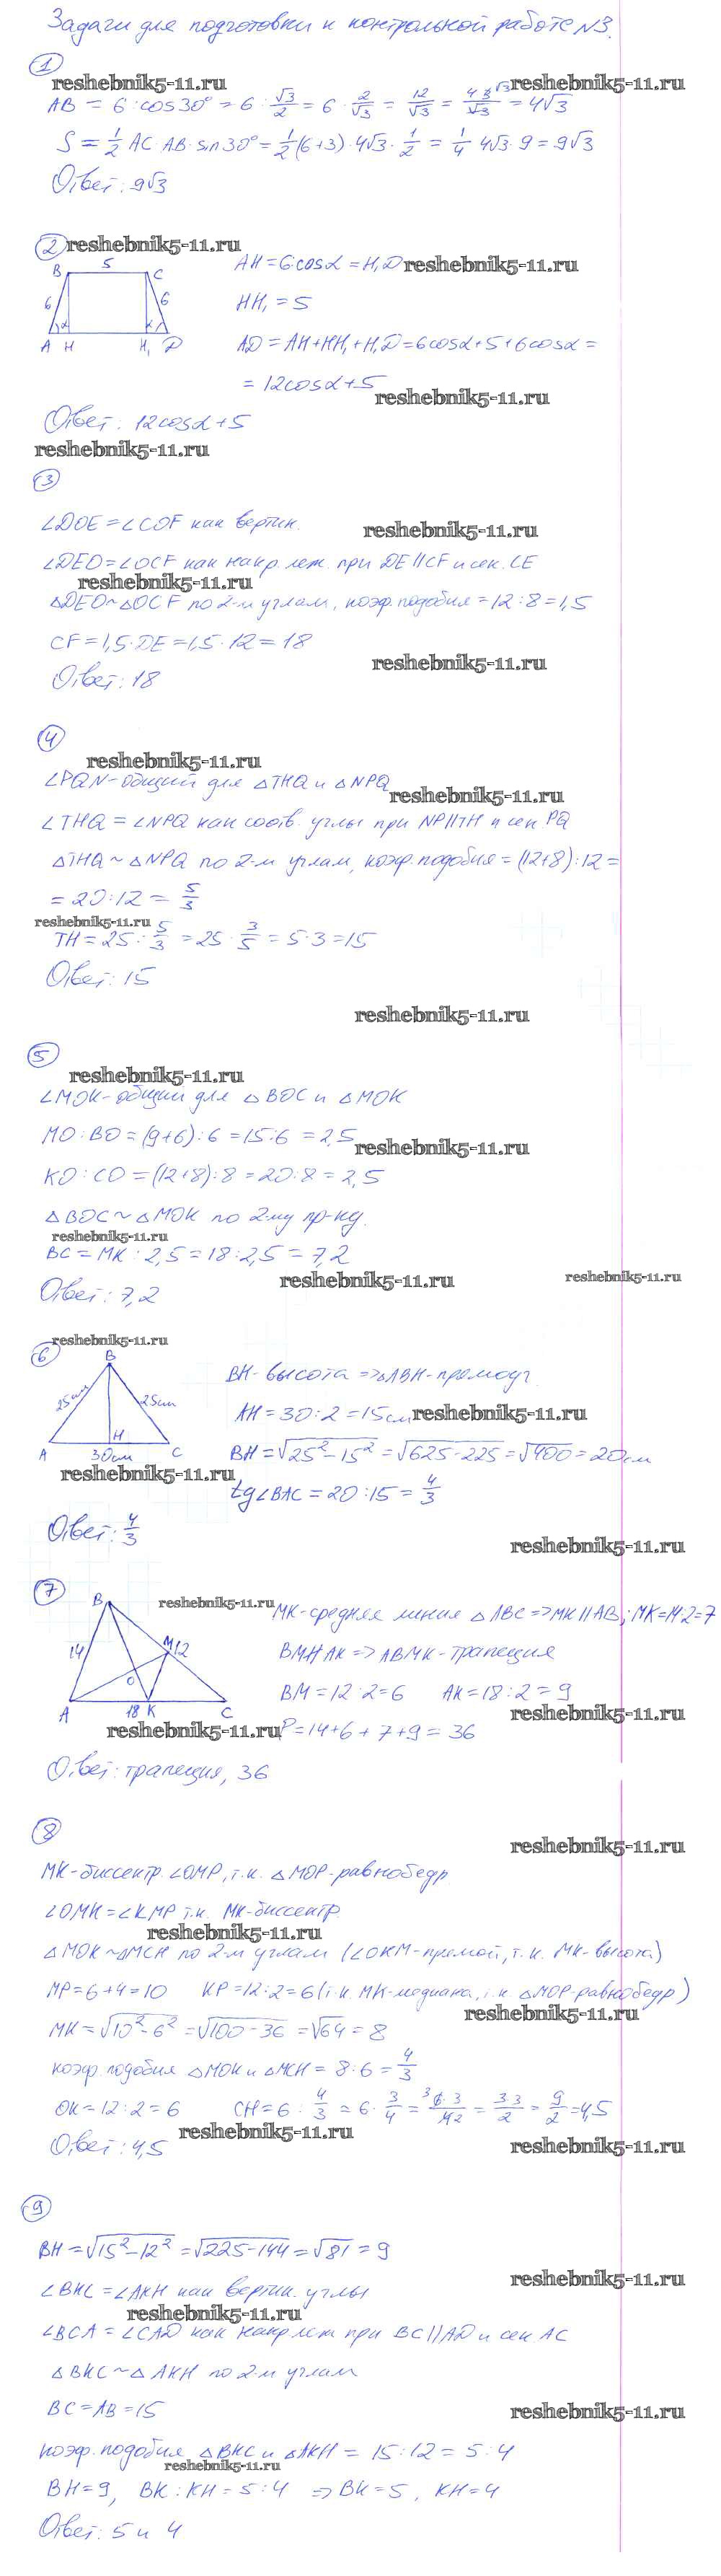 Задачи для подготовки к контрольной работе №3.
1
reshebnik5-11.ru reshebnik5-11.ru
AB = 6 : cos30° = 6 : √3/2 = 6 · 2/√3 = 12/√3 = 4·3/√3 = 4√3
S = 1/2 AC AB · sin30° = 1/2 (6+3) · 4√3 · 1/2 = 1/4 · 4√3 · 9 = 9√3
Ответ: 9√3
2 reshebnik5-11.ru
B 5 C
6 6
α α
A H H₁ D
AH = 6·cosα = H₁D reshebnik5-11.ru
HH₁ = 5
AD = AH + HH₁ + H₁D = 6cosα + 5 + 6cosα =
= 12cosα + 5
reshebnik5-11.ru
Ответ: 12cosα + 5
reshebnik5-11.ru
3
∠DOE = ∠COF как вертик.
reshebnik5-11.ru
∠DEO = ∠OCF как накр. леж. при DE||CF и сек. CE
reshebnik5-11.ru
△DEO ~ △OCF по 2-м углам, коэф. подобия = 12 : 8 = 1,5
CF = 1,5 · DE = 1,5 · 12 = 18
reshebnik5-11.ru
Ответ: 18
4
reshebnik5-11.ru
∠PQN - общий для △THQ и △NPQ
reshebnik5-11.ru
∠THQ = ∠NPQ как соотв. углы при NP||TH и сек. PQ
△THQ ~ △NPQ по 2-м углам, коэф. подобия = (12+8) : 12 =
= 20 : 12 = 5/3
reshebnik5-11.ru
TH = 25 : 5/3 = 25 · 3/5 = 5 · 3 = 15
Ответ: 15
reshebnik5-11.ru
5
reshebnik5-11.ru
∠MOK - общий для △BOC и △MOK
MO : BO = (9+6) : 6 = 15 : 6 = 2,5
reshebnik5-11.ru
KO : CO = (12+8) : 8 = 20 : 8 = 2,5
△BOC ~ △MOK по 2-му пр-ку.
reshebnik5-11.ru
BC = MK : 2,5 = 18 : 2,5 = 7,2
reshebnik5-11.ru reshebnik5-11.ru
Ответ: 7,2
reshebnik5-11.ru
6
B
25см 25см
A H C
30см
BH - высота => △ABH - прямоуг.
AH = 30 : 2 = 15см reshebnik5-11.ru
BH = √25² - 15² = √625 - 225 = √400 = 20см
reshebnik5-11.ru
tg∠BAC = 20 : 15 = 4/3
Ответ: 4/3
reshebnik5-11.ru
7
B
14 M 12
O
A 18 K C
reshebnik5-11.ru
MK - средняя линия △ABC => MK||AB; MK = 14 : 2 = 7
BM∦AK => ABMK - трапеция
BM = 12 : 2 = 6 AK = 18 : 2 = 9
reshebnik5-11.ru
reshebnik5-11.ru P = 14 + 6 + 7 + 9 = 36
Ответ: трапеция, 36
8
reshebnik5-11.ru
MK - биссектр. ∠OMP, т.к. △MOP - равнобедр
∠OMK = ∠KMP т.к. MK - биссектр.
reshebnik5-11.ru
△MOK ~ △MCH по 2-м углам (∠OKM - прямой, т.к. MK - высота)
MP = 6 + 4 = 10 KP = 12 : 2 = 6 (т.к. MK - медиана, т.к △MOP - равнобедр)
reshebnik5-11.ru
MK = √10² - 6² = √100 - 36 = √64 = 8
коэф подобия △MOK и △MCH = 8 : 6 = 4/3
OK = 12 : 2 = 6 CH = 6 : 4/3 = 6 · 3/4 = 6·3/4 2 = 3·3/2 = 9/2 = 4,5
reshebnik5-11.ru
Ответ: 4,5
reshebnik5-11.ru
9
BH = √15² - 12² = √225 - 144 = √81 = 9
reshebnik5-11.ru
∠BKC = ∠AKH как вертик. углы
reshebnik5-11.ru
∠BCA = ∠CAD как накр леж при BC||AD и сек AC
△BKC ~ △AKH по 2-м углам
BC = AB = 15
reshebnik5-11.ru
коэф. подобия △BKC и △AKH = 15 : 12 = 5 : 4
reshebnik5-11.ru
BH = 9, BK : KH = 5 : 4 => BK = 5, KH = 4
Ответ: 5 и 4